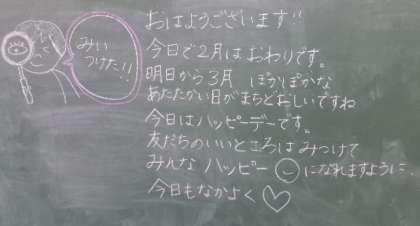 みい
つけた!!
おはようございます!!
今日で2月はおわりです。
明日から3月 ぽかぽかな
あたたかい日がまちどおしいですね
今日はハッピーデーです。
友だちのいいところはみつけて
みんなハッピーになれますように.
今日もなかよく